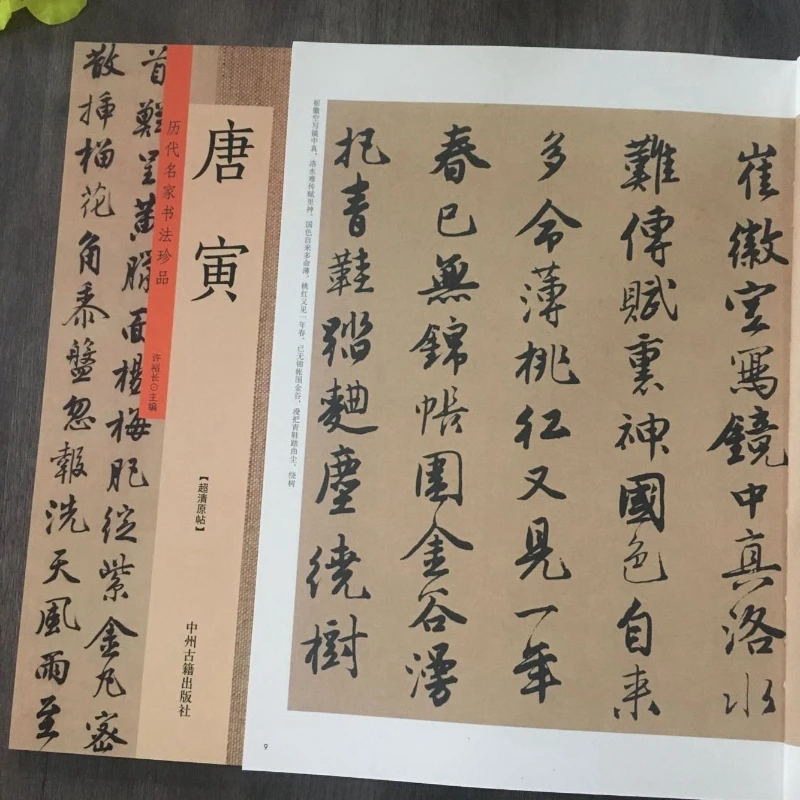 唐寅
历代名家书法珍品
许裕长⊙主编
【超清原帖】
中州古籍出版社
首呈黄臘面楊梅肥綻紫金丸密
散插榴花角黍盤忽報洗天風雨至
崔徽空寫鏡中真洛水
難傳賦裏神國色自来
多命薄桃红又見一年
春已無錦帳圍金谷漫
把青鞋踏麯塵繞樹
崔徽空写镜中真，洛水难传赋里神。国色自来多命薄，桃红又见一年春。已无锦帐围金谷，漫把青鞋踏曲尘。绕树
9